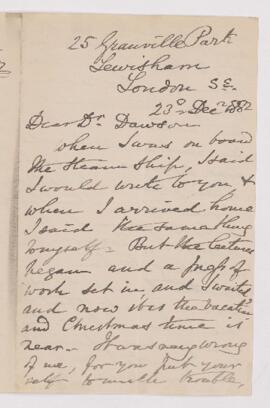 25 Granville Park
Lewisham
London S.E.
23rd Decr 1882
Dear Dr. Dawson
When I was on board
the steam ship, I said
I would write to you &
when I arrived home
I said the same thing
to myself - But the lectures
began and a press of
work set in and I waited
and now it is the vacation
and Christmas time is
near. It was very wrong
of me, for you put your
self to trouble,